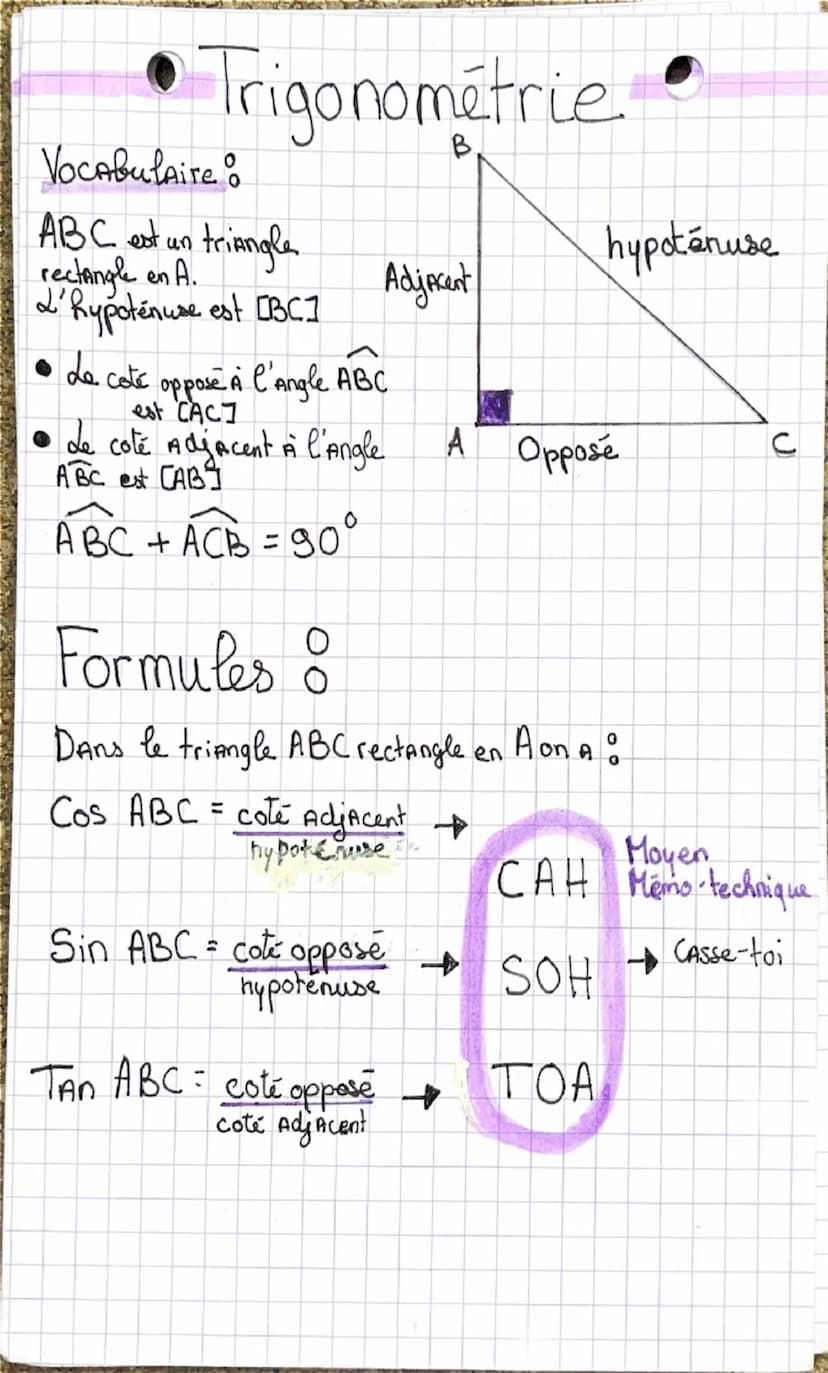 Trigonométrie
Vocabulaire :
B
ABC est un triangle
rectangle en A.
L'hypoténuse est [BC]
hypoténuse
Adjacent
• Le coté opposé à l'angle ABC
est [AC]
• Le coté Adjacent à l'angle
ABC est [AB]
A
Opposé
C
ABC + ACB = 90°
Formules :
Dans le triangle ABC rectangle en A on a :
Cos ABC = coté Adjacent →
hypoténuse
CAH
Moyen
Mémo-technique
Sin ABC = coté opposé →
hypoténuse
SOH → Casse-toi
Tan ABC = coté opposé → TOA
coté Adjacent